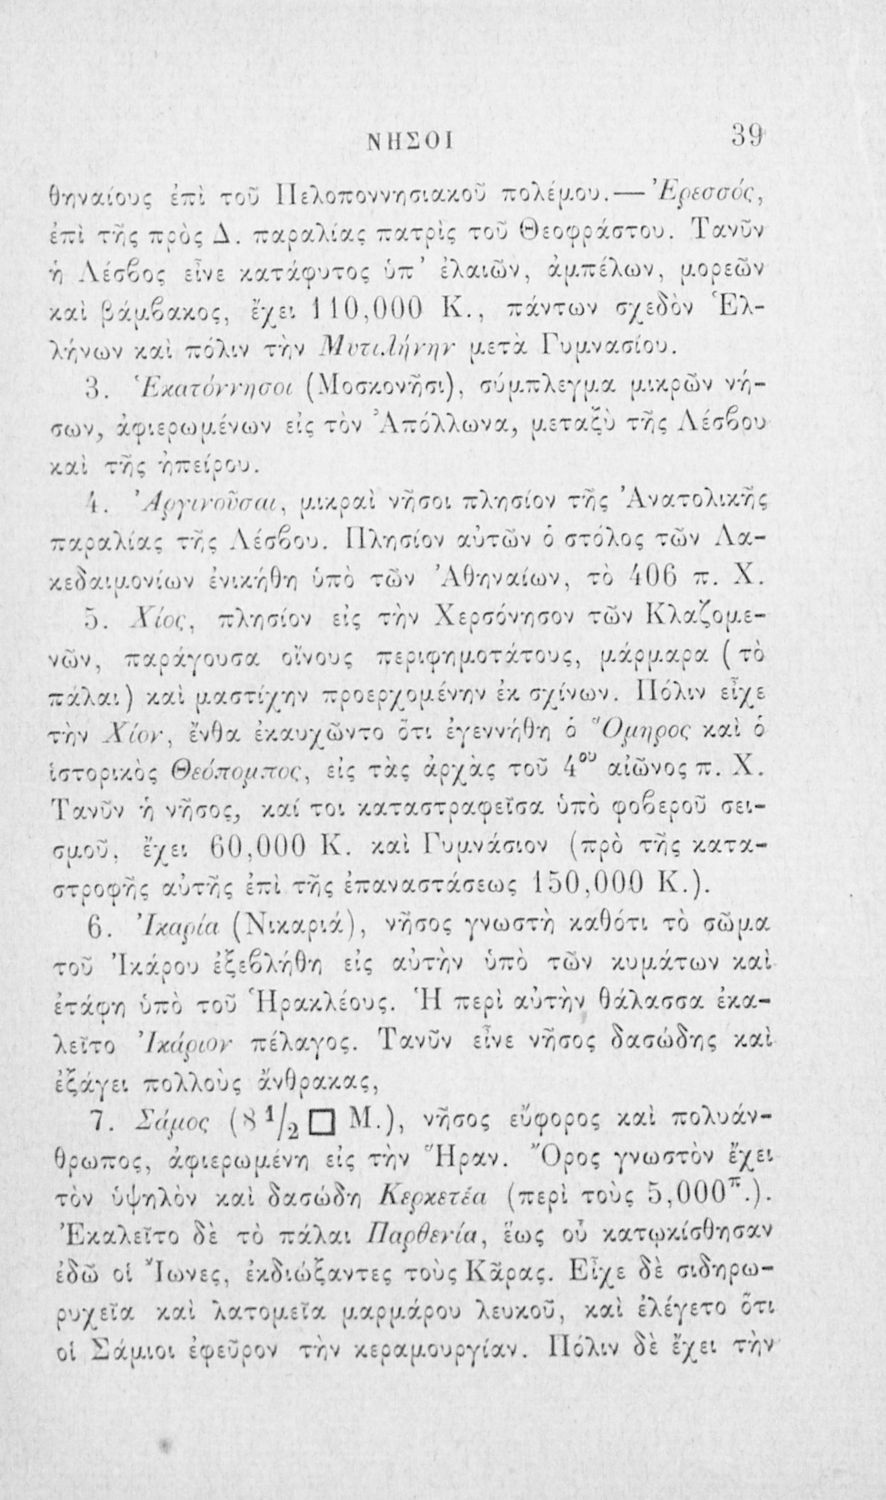 ΝΗΣΟΙ 39
θηναίους ἐπὶ τοῦ Πελοποννησιακοῦ πολέμου.— Ἐρεσσός,
ἐπὶ τῆς πρὸς Δ. παραλίας πατρὶς τοῦ Θεοφράστου. Τανῦν
ἡ Λέσβος εἶνε κατάφυτος ὑπ’ ἐλαιῶν, ἀμπέλων, μορεῶν
καὶ βάμβακος, ἔχει 110,000 Κ., πάντων σχεδὸν Ἑλ-
λήνων καὶ πόλιν τὴν Μυτιλήνην μετὰ Γυμνασίου.
3. Ἑκατόννησοι (Μοσκονῆσι), σύμπλεγμα μικρῶν νή-
σων, ἀφιερωμένων εἰς τὸν Ἀπόλλωνα, μεταξὺ τῆς Λέσβου
καὶ τῆς ἠπείρου.
4. Ἀργινοῦσαι, μικραὶ νῆσοι πλησίον τῆς Ἀνατολικῆς
παραλίας τῆς Λέσβου. Πλησίον αὐτῶν ὁ στόλος τῶν Λα-
κεδαιμονίων ἐνικήθη ὑπὸ τῶν Ἀθηναίων, τὸ 406 π. Χ.
5. Χίος, πλησίον εἰς τὴν Χερσόνησον τῶν Κλαζομε-
νῶν, παράγουσα οἴνους περιφημοτάτους, μάρμαρα (τὸ
πάλαι) καὶ μαστίχην προερχομένην ἐκ σχίνων. Πόλιν εἶχε
τὴν Χίον, ἔνθα ἐκαυχῶντο ὅτι ἐγεννήθη ὁ Ὅμηρος καὶ ὁ
ἱστορικὸς Θεόπομπος, εἰς τὰς ἀρχὰς τοῦ 4ου αἰῶνος π. Χ.
Τανῦν ἡ νῆσος, καί τοι καταστραφεῖσα ὑπὸ φοβεροῦ σει-
σμοῦ, ἔχει 60,000 Κ. καὶ Γυμνάσιον (πρὸ τῆς κατα-
στροφῆς αὐτῆς ἐπὶ τῆς ἐπαναστάσεως 150,000 Κ.).
6. Ἰκαρία (Νικαριά), νῆσος γνωστὴ καθότι τὸ σῶμα
τοῦ Ἰκάρου ἐξεβλήθη εἰς αὐτὴν ὑπὸ τῶν κυμάτων καὶ
ἐτάφη ὑπὸ τοῦ Ἡρακλέους. Ἡ περὶ αὐτὴν θάλασσα ἐκα-
λεῖτο Ἰκάριον πέλαγος. Τανῦν εἶνε νῆσος δασώδης καὶ
ἐξάγει πολλοὺς ἄνθρακας,
7. Σάμος (8 1/2 □ Μ.), νῆσος εὔφορος καὶ πολυάν-
θρωπος, ἀφιερωμένη εἰς τὴν Ἥραν. Ὄρος γνωστὸν ἔχει
τὸν ὑψηλὸν καὶ δασώδη Κερκετέα (περὶ τοὺς 5,000π.).
Ἐκαλεῖτο δὲ τὸ πάλαι Παρθενία, ἕως οὗ κατῳκίσθησαν
ἐδῶ οἱ Ἴωνες, ἐκδιώξαντες τοὺς Κᾶρας. Εἶχε δὲ σιδηρω-
ρυχεῖα καὶ λατομεῖα μαρμάρου λευκοῦ, καὶ ἐλέγετο ὅτι
οἱ Σάμιοι ἐφεῦρον τὴν κεραμουργίαν. Πόλιν δὲ ἔχει τὴν